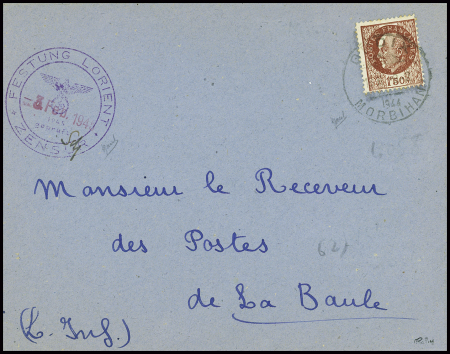 FESTUNG LORIENT
Feb. 194
ZENSUR
1F50
1944
MORBIHAN
Monsieur le Receveur
des Postes
de La Baule
(L. Inf.)